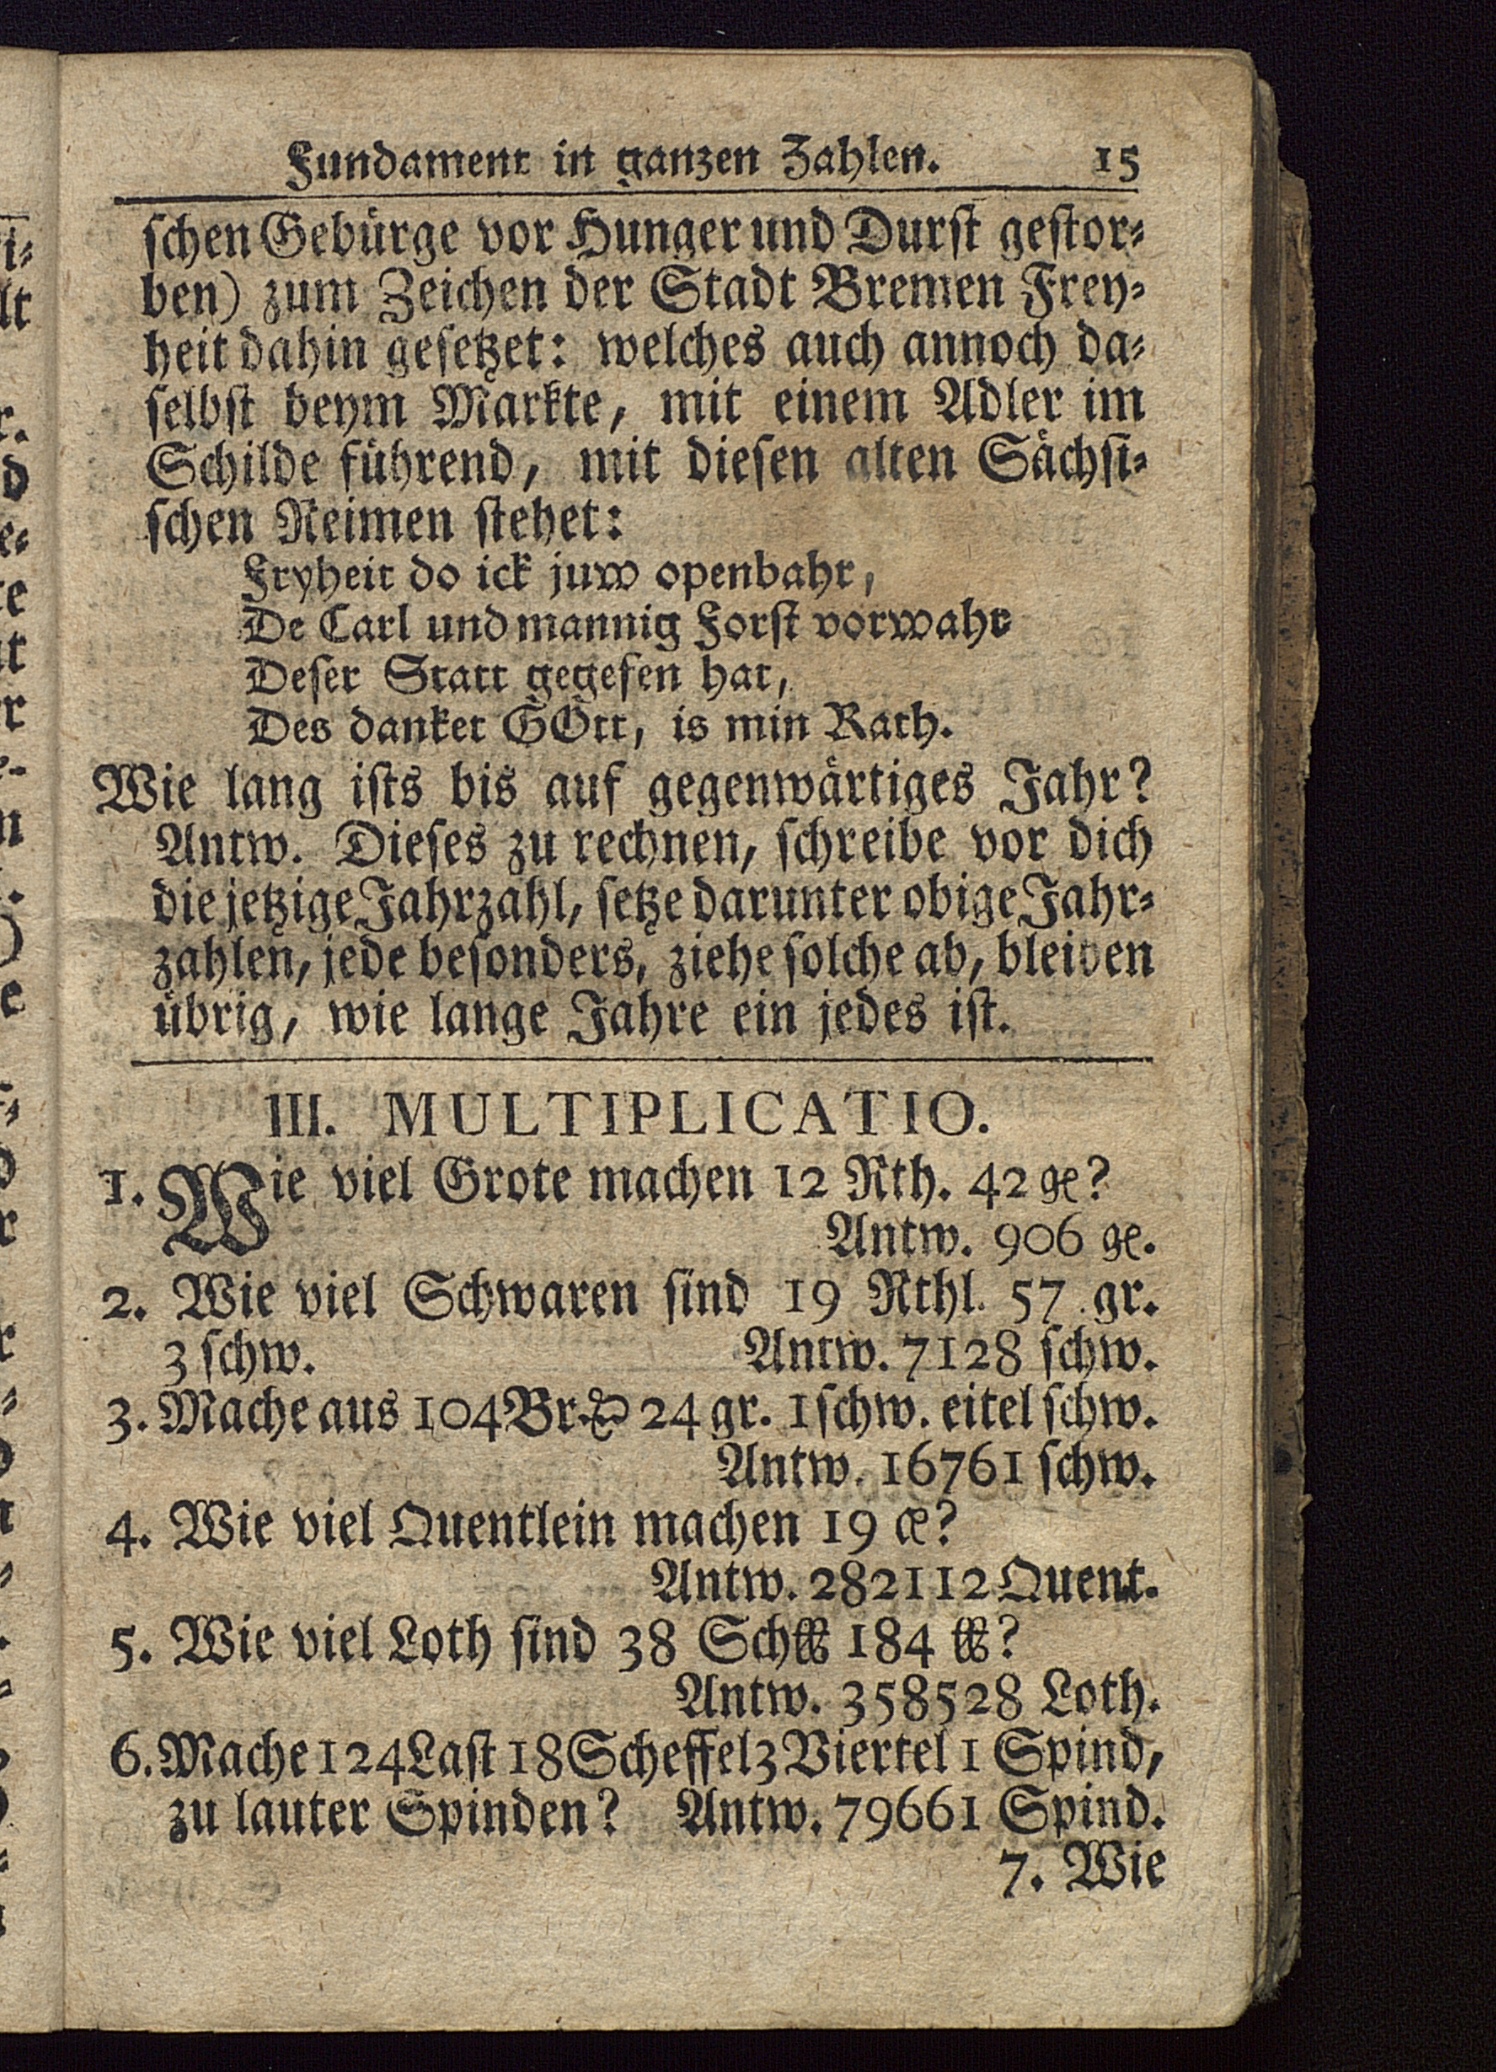 Fundament in ganzen Zahlen. 15
schen Gebürge vor Hunger und Durst gestor-
ben) zum Zeichen der Stadt Bremen Frey-
heit dahin gesetzet: welches auch annoch da-
selbst beym Markte, mit einem Adler im
Schilde führend, mit diesen alten Sächsi-
schen Reimen stehet:
Fryheit do ick juw openbahr,
De Carl und mannig Forst vorwahr
Deser Statt gegefen hat,
Des danket GOtt, is min Rath.
Wie lang ists bis auf gegenwärtiges Jahr?
Antw. Dieses zu rechnen, schreibe vor dich
die jetzige Jahrzahl, setze darunter obige Jahr-
zahlen, jede besonders, ziehe solche ab, bleiben
übrig, wie lange Jahre ein jedes ist.
III. MULTIPLICATIO.
1. Wie viel Grote machen 12 Rth. 42 gr?
Antw. 906 gr.
2. Wie viel Schwaren sind 19 Rthl. 57 gr.
3 schw. Antw. 7128 schw.
3. Mache aus 104 Br. 24 gr. 1 schw. eitel schw.
Antw. 16761 schw.
4. Wie viel Quentlein machen 19 ?
Antw. 282112 Quent.
5. Wie viel Loth sind 38 Sch℔ 184 ℔?
Antw. 358528 Loth.
6. Mache 124 Last 18 Scheffel 3 Viertel 1 Spind,
zu lauter Spinden? Antw. 79661 Spind.
7. Wie